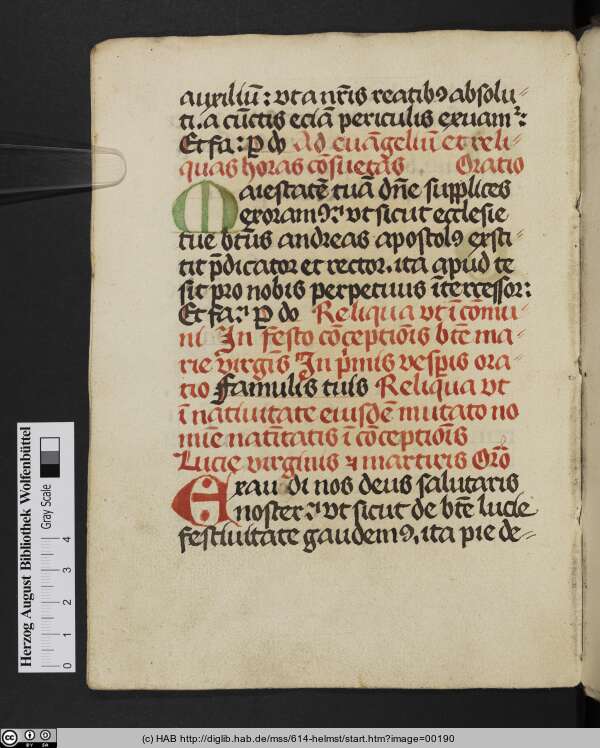 auxiliū: vt a nr̄is reatibꝰ absolu-
ti. a cūctis eciā periculis exuamʳ:
Et fa: p do Ad euāgeliū et reli-
quas horas cōsuetas. Oratio
Maiestatē tuā dn̄e supplices
exoramꝰ: vt sicut ecclesie
tue bt̄us andreas apostolꝰ exsti-
tit p̄dicator et rector. ita apud te
sit pro nobis perpetuus ītercessor:
Et fa: p do Reliqua vt ī cōmu-
ni In festo cōceptiōis bt̄e ma-
rie virgīs In p̄mis vesp̄is ora-
tio Famulis tuis Reliqua vt
ī natiuitate eiusdē mutato no
mīe natīitatis ī cōceptiōis
Lucie virginis ⁊ martiris Orō
Exaudi nos deus salutaris
noster: vt sicut de bt̄e lucie
festiuitate gaudemꝰ, ita pie de-
Herzog August Bibliothek Wolfenbüttel
Gray Scale
0 1 2 3 4
(c) HAB http://diglib.hab.de/mss/614-helmst/start.htm?image=00190
BY SA